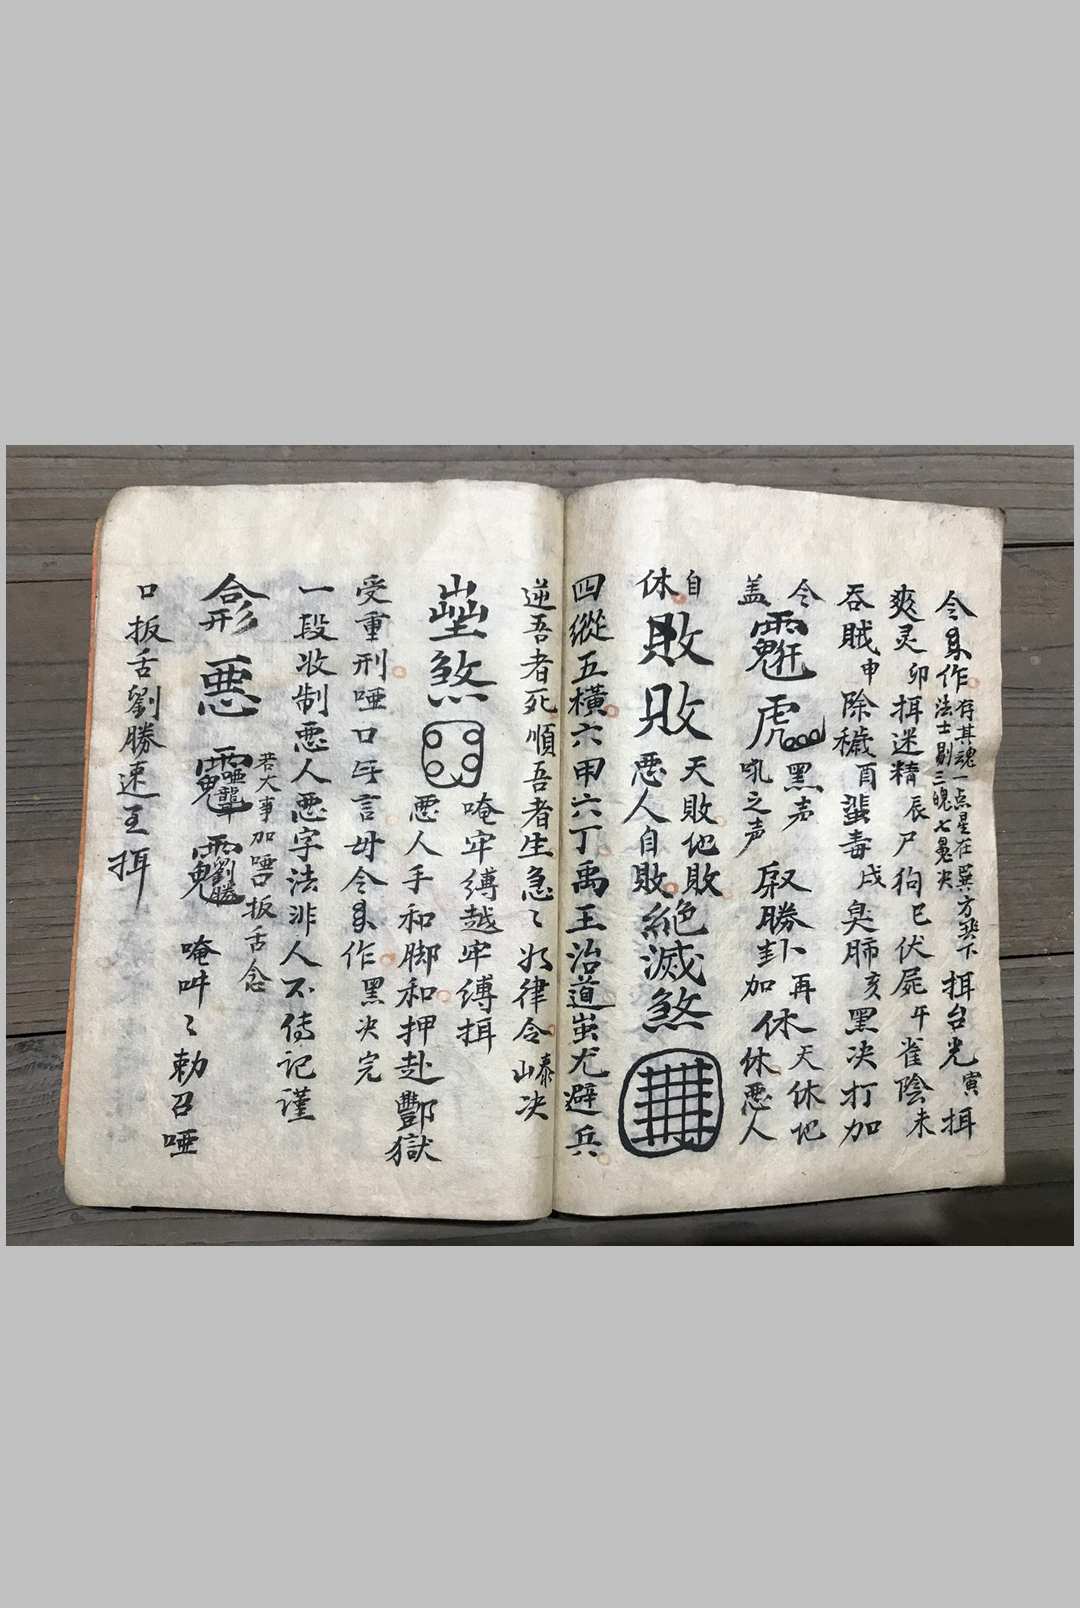 令 作 存其魂一点星在巽方發下
法士剔三魄七 决 挕台光寅挕
爽灵卯挕迷精辰尸狗巳伏屍午雀陰未
吞賊申除穢酉蜚毒戌臭肺亥黑决打加
令 虎 黑声
盖 吼之声 勝卦卜再加休天休地休惡人
自休 敗 敗 天敗地敗惡人自敗絕滅煞
四縱五橫六甲六丁禹王治道蚩尤避兵
逆吾者死順吾者生急〻如律令 决
煞 唵牢縛越牢縛挕
惡人手和脚和押赴酆獄
受重刑啞口 言毋令 作黑决完
一段收制惡人惡字法非人不傳記謹
若大事加啞口扳舌念
惡 劉勝 唵吽〻勅召啞
口扳舌劉勝速至挕